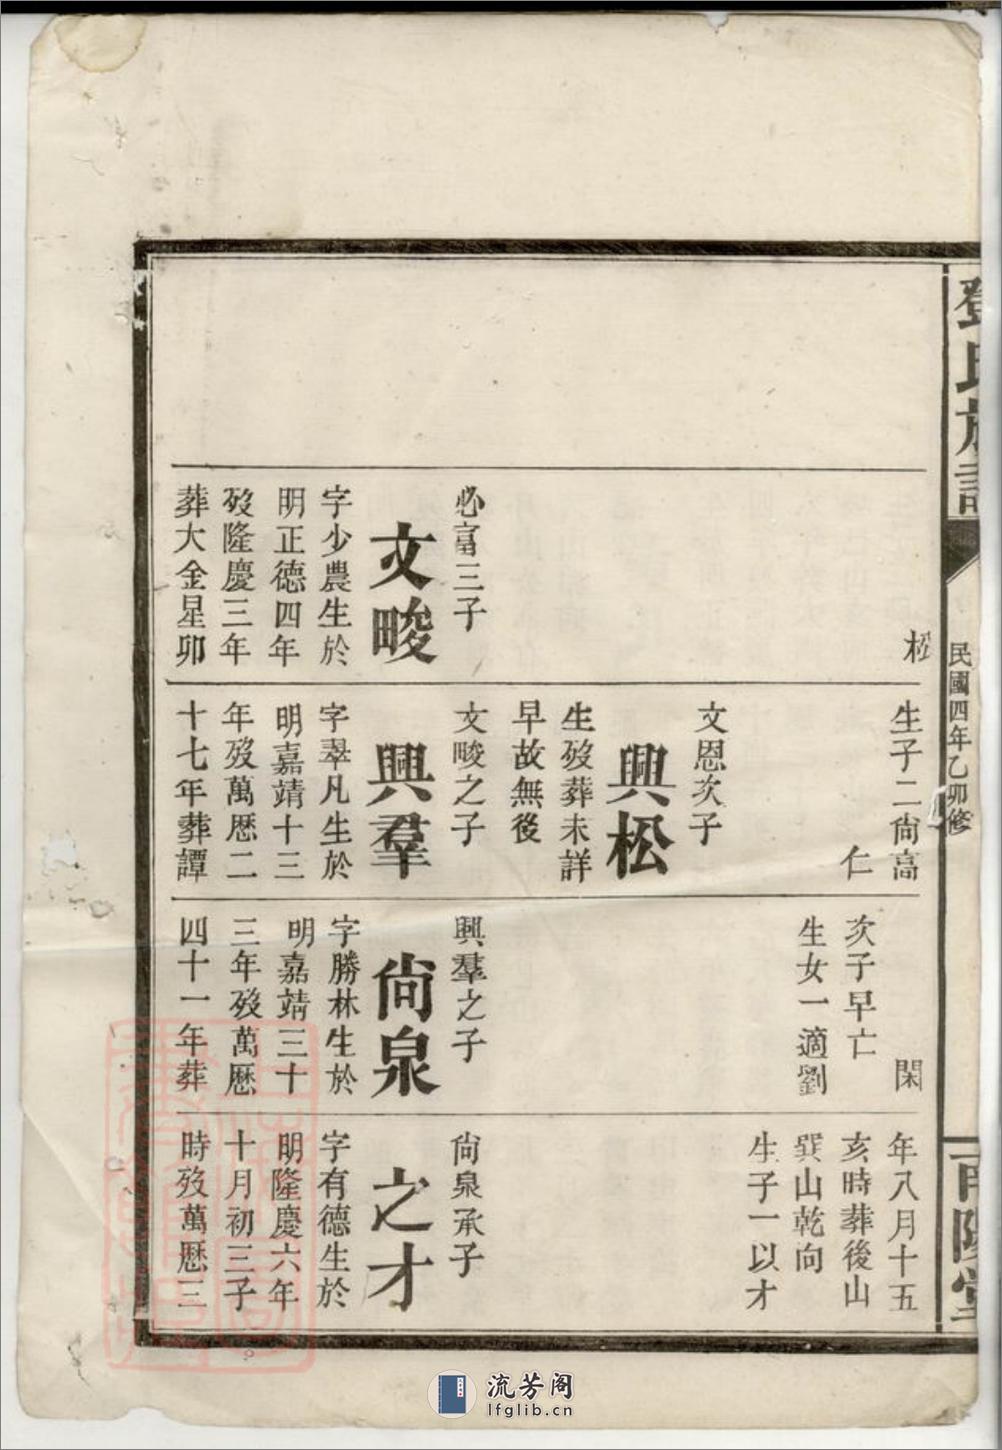 鄧氏族譜
民國四年乙卯修
南陽堂
松
必富三子
文畯
字少農生於
明正德四年
歿隆慶三年
葬大金星卯
生子二尙高
仁
文恩次子
興松
生歿葬未詳
早故無後
文畯之子
興羣
字翠凡生於
明嘉靖十三
年歿萬厯二
十七年葬譚
閑
次子早亡
生女一適劉
興羣之子
尙泉
字勝林生於
明嘉靖三十
三年歿萬厯
四十一年葬
年八月十五
亥時葬後山
巽山乾向
生子一以才
尙泉承子
之才
字有德生於
明隆慶六年
十月初三子
時歿萬厯三
流芳阁
lfglib.cn